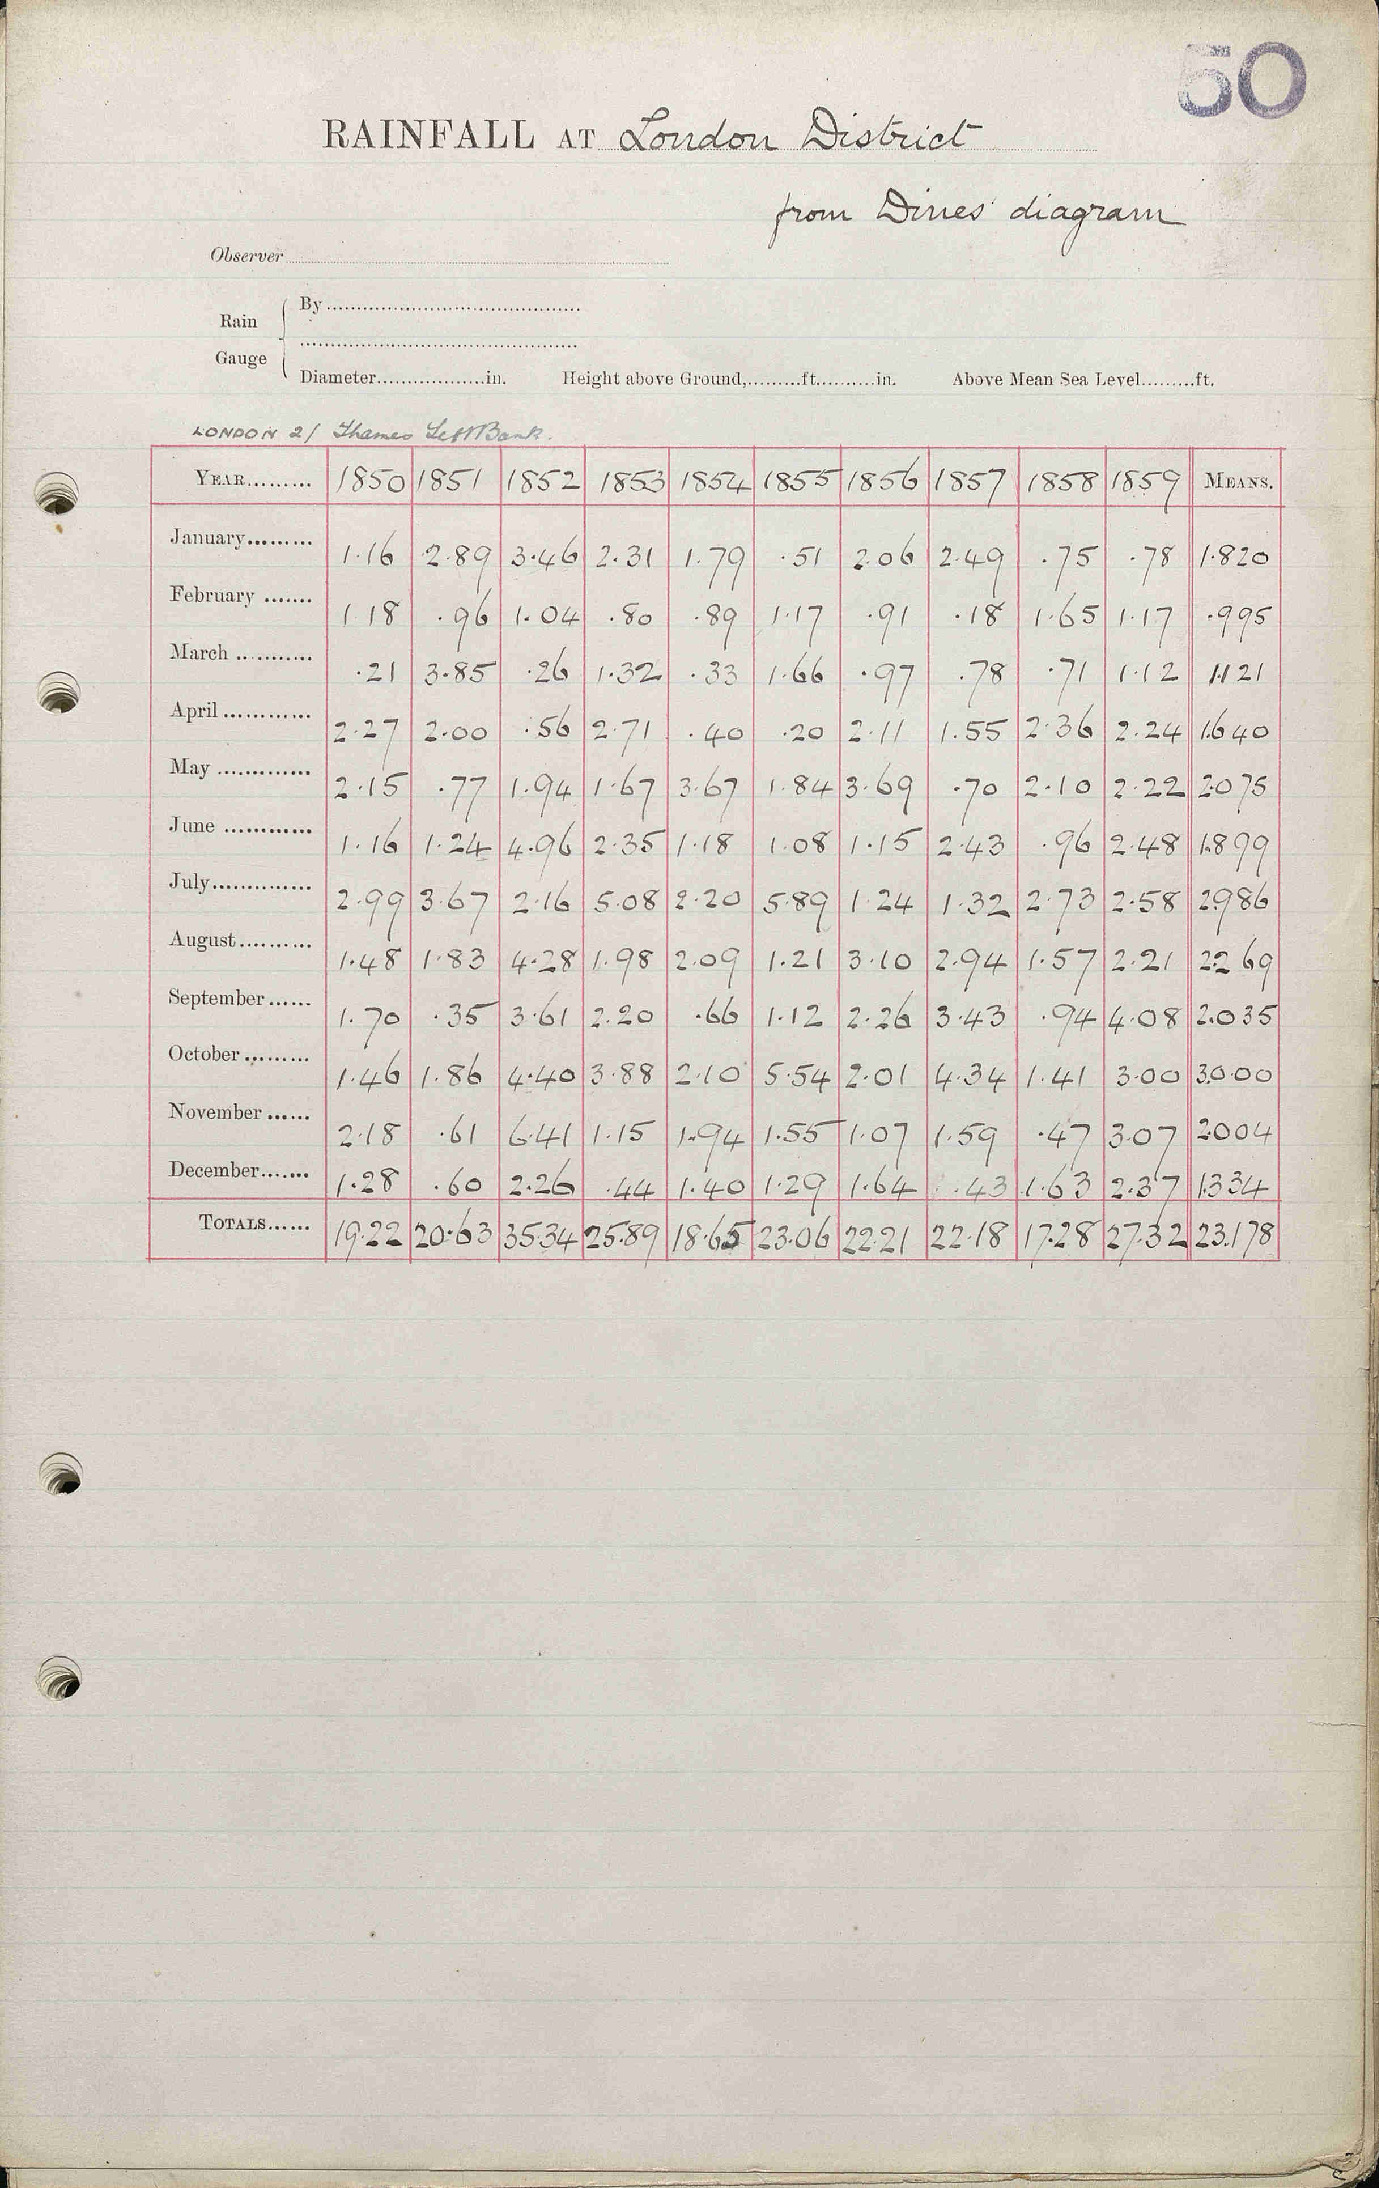 50
RAINFALL AT London District
from Dines' diagram
Observer
Rain Gauge
By
Diameter..................in. Height above Ground,.........ft..........in. Above Mean Sea Level.........ft.
LONDON 21 Thames Left Bank.
YEAR......... 1850 1851 1852 1853 1854 1855 1856 1857 1858 1859 MEANS.
January......... 1.16 2.89 3.46 2.31 1.79 .51 2.06 2.49 .75 .78 1.820
February ....... 1.18 .96 1.04 .80 .89 1.17 .91 .18 1.65 1.17 .995
March ........... .21 3.85 .26 1.32 .33 1.66 .97 .78 .71 1.12 1.121
April ............ 2.27 2.00 .56 2.71 .40 .20 2.11 1.55 2.36 2.24 1.640
May ............. 2.15 .77 1.94 1.67 3.67 1.84 3.69 .70 2.10 2.22 2.075
June ............ 1.16 1.24 4.96 2.35 1.18 1.08 1.15 2.43 .96 2.48 1.899
July.............. 2.99 3.67 2.16 5.08 2.20 5.89 1.24 1.32 2.73 2.58 2.986
August.......... 1.48 1.83 4.28 1.98 2.09 1.21 3.10 2.94 1.57 2.21 2.269
September...... 1.70 .35 3.61 2.20 .66 1.12 2.26 3.43 .94 4.08 2.035
October ......... 1.46 1.86 4.40 3.88 2.10 5.54 2.01 4.34 1.41 3.00 3.000
November ...... 2.18 .61 6.41 1.15 1.94 1.55 1.07 1.59 .47 3.07 2.004
December....... 1.28 .60 2.26 .44 1.40 1.29 1.64 .43 1.63 2.37 1.334
TOTALS...... 19.22 20.63 35.34 25.89 18.65 23.06 22.21 22.18 17.28 27.32 23.178